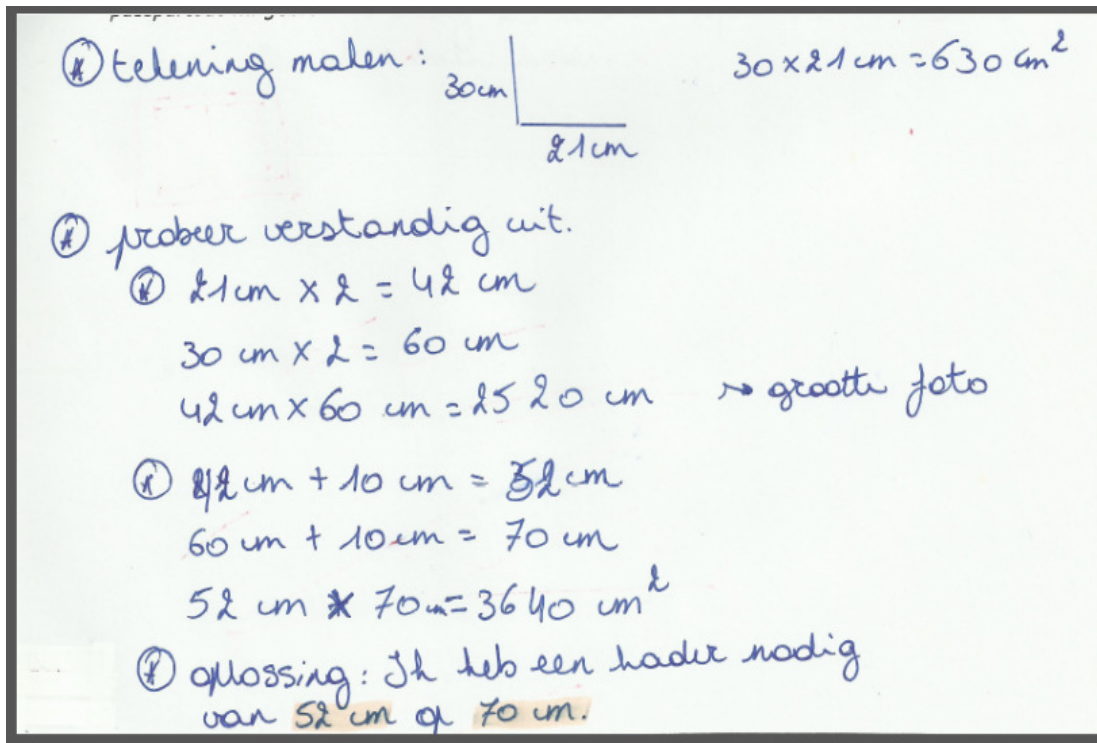 tekening maken:
30 cm
21 cm
30 x 21 cm = 630 cm²
probeer verstandig uit.
21 cm x 2 = 42 cm
30 cm x 2 = 60 cm
42 cm x 60 cm = 2520 cm → grootte foto
42 cm + 10 cm = 52 cm
60 cm + 10 cm = 70 cm
52 cm x 70 cm = 3640 cm²
oplossing: Ik heb een kader nodig
van 52 cm op 70 cm.